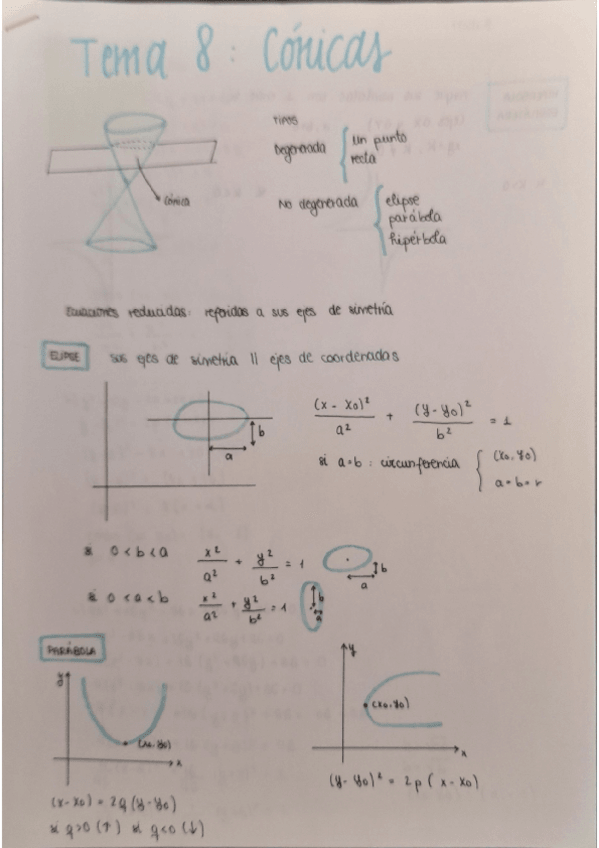 Tema 8: Cónicas
TIPOS
Degenerada { un punto
recta
cónica
No degenerada { elipse
parábola
hipérbola
Ecuaciones reducidas: referidas a sus ejes de simetría
ELIPSE sus ejes de simetría || ejes de coordenadas
(x - x0)²/a² + (y - y0)²/b² = 1
b
a
si a=b: circunferencia { (x0, y0)
a=b=r
si 0<b<a x²/a² + y²/b² = 1
b
a
si 0<a<b x²/a² + y²/b² = 1
b
a
PARÁBOLA
y
(x0, y0)
x
y
(x0, y0)
x
(y - y0)² = 2p (x - x0)
(x-x0) = 2q (y-y0)
si q>0 (↑) si q<0 (↓)